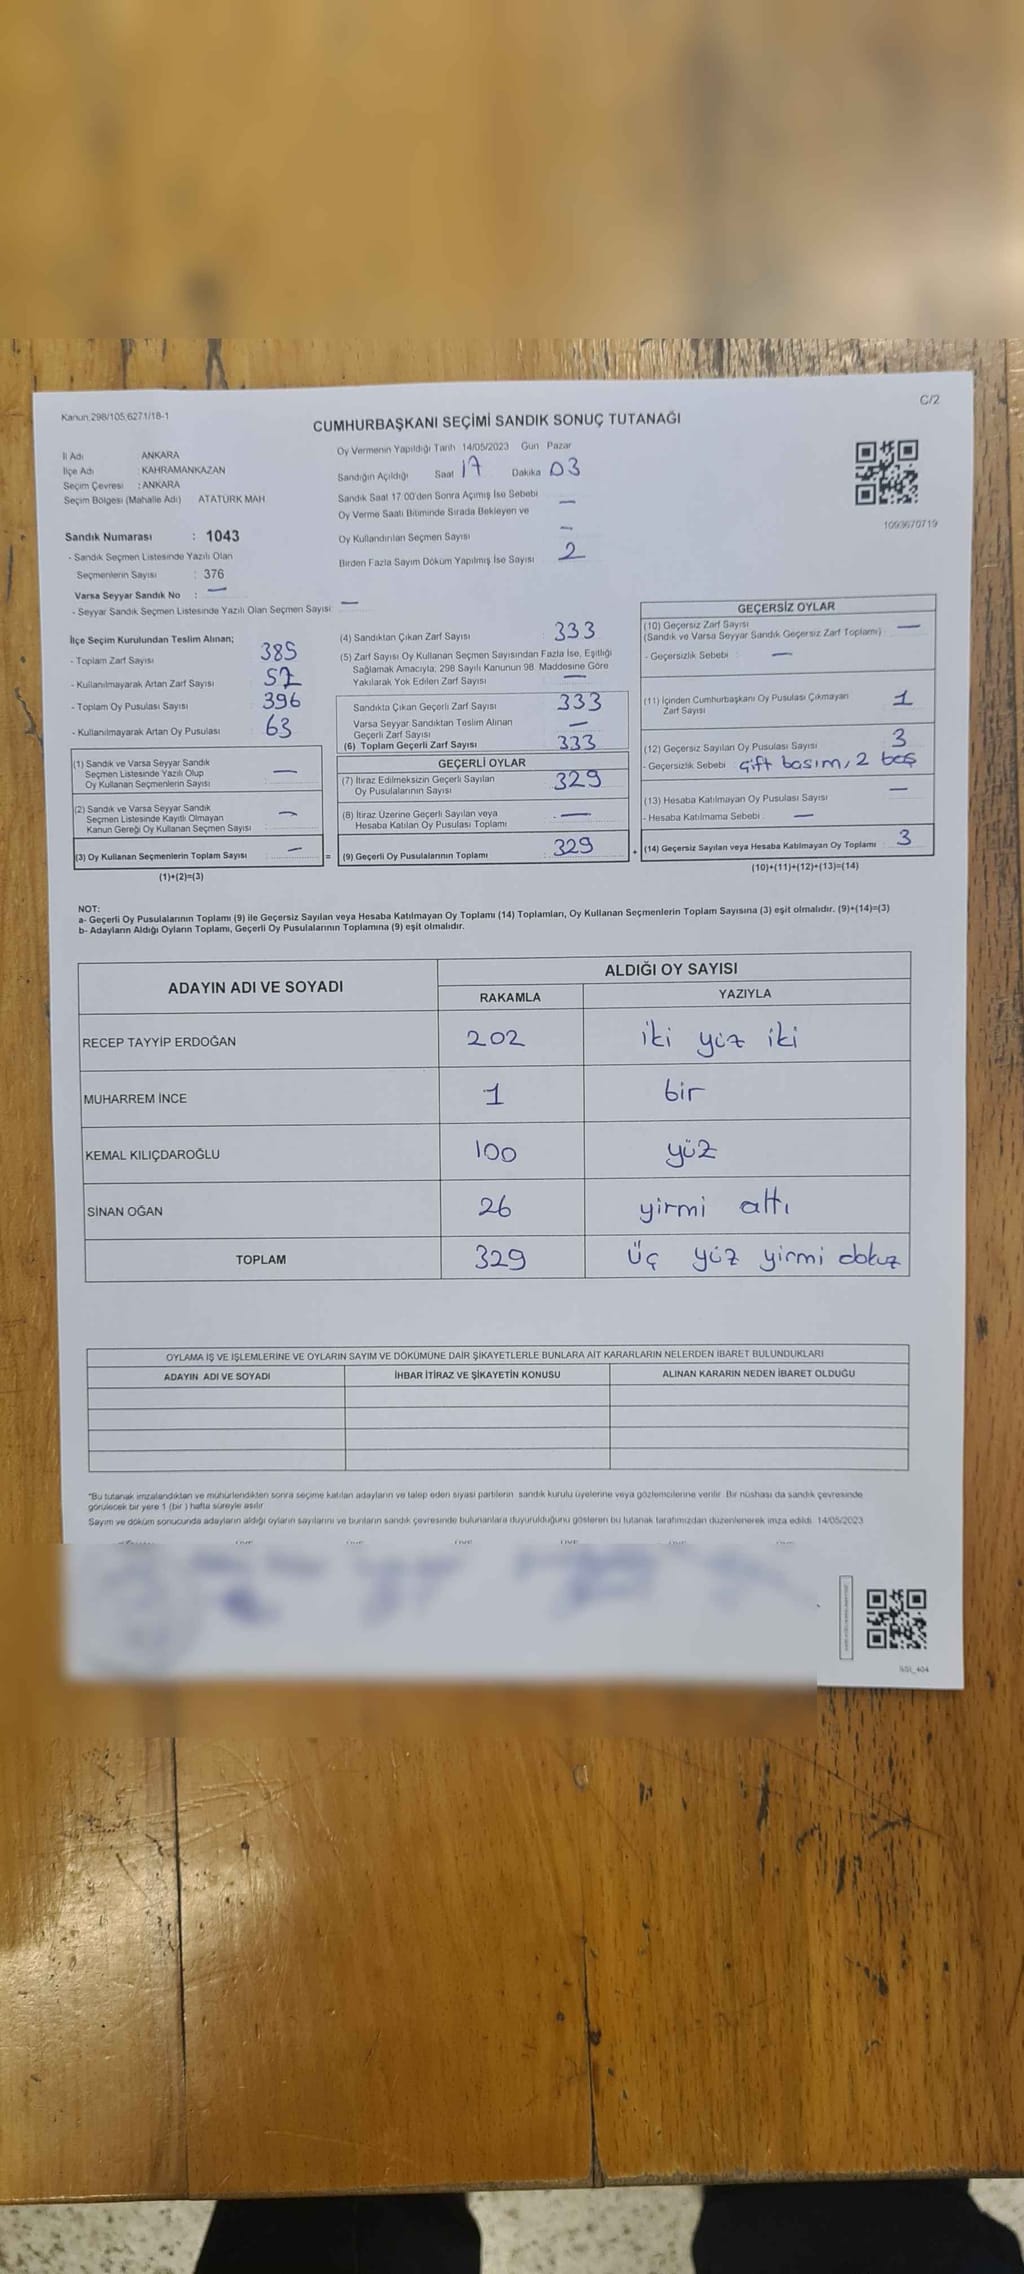 Kanun 298/105,6271/18-1
C/2
CUMHURBAŞKANI SEÇİMİ SANDIK SONUÇ TUTANAĞI
İl Adı ANKARA
İlçe Adı KAHRAMANKAZAN
Seçim Çevresi : ANKARA
Seçim Bölgesi (Mahalle Adı) ATATÜRK MAH
Sandık Numarası : 1043
- Sandık Seçmen Listesinde Yazılı Olan
Seçmenlerin Sayısı : 376
Varsa Seyyar Sandık No : —
- Seyyar Sandık Seçmen Listesinde Yazılı Olan Seçmen Sayısı: —
Oy Vermenin Yapıldığı Tarih 14/05/2023 Gün Pazar
Sandığın Açıldığı Saat 17 Dakika 03
Sandık Saat 17:00'den Sonra Açımış İse Sebebi —
Oy Verme Saati Bitiminde Sırada Bekleyen ve
Oy Kullandırılan Seçmen Sayısı —
Birden Fazla Sayım Döküm Yapılmış İse Sayısı 2
1093670719
İlçe Seçim Kurulundan Teslim Alınan;
- Toplam Zarf Sayısı 385
- Kullanılmayarak Artan Zarf Sayısı 52
- Toplam Oy Pusulası Sayısı 396
- Kullanılmayarak Artan Oy Pusulası 63
(1) Sandık ve Varsa Seyyar Sandık
Seçmen Listesinde Yazılı Olup
Oy Kullanan Seçmenlerin Sayısı —
(2) Sandık ve Varsa Seyyar Sandık
Seçmen Listesinde Kayıtlı Olmayan
Kanun Gereği Oy Kullanan Seçmen Sayısı —
(3) Oy Kullanan Seçmenlerin Toplam Sayısı —
(1)+(2)=(3)
=
(4) Sandıktan Çıkan Zarf Sayısı : 333
(5) Zarf Sayısı Oy Kullanan Seçmen Sayısından Fazla İse, Eşitliği
Sağlamak Amacıyla, 298 Sayılı Kanunun 98. Maddesine Göre
Yakılarak Yok Edilen Zarf Sayısı —
Sandıkta Çıkan Geçerli Zarf Sayısı 333
Varsa Seyyar Sandıktan Teslim Alınan
Geçerli Zarf Sayısı —
(6) Toplam Geçerli Zarf Sayısı 333
GEÇERLİ OYLAR
(7) İtiraz Edilmeksizin Geçerli Sayılan
Oy Pusulalarının Sayısı 329
(8) İtiraz Üzerine Geçerli Sayılan veya
Hesaba Katılan Oy Pusulası Toplamı —
(9) Geçerli Oy Pusulalarının Toplamı 329
+
GEÇERSİZ OYLAR
(10) Geçersiz Zarf Sayısı
(Sandık ve Varsa Seyyar Sandık Geçersiz Zarf Toplamı) —
- Geçersizlik Sebebi —
(11) İçinden Cumhurbaşkanı Oy Pusulası Çıkmayan
Zarf Sayısı 1
(12) Geçersiz Sayılan Oy Pusulası Sayısı 3
- Geçersizlik Sebebi Çift basım, 2 boş
(13) Hesaba Katılmayan Oy Pusulası Sayısı —
- Hesaba Katılmama Sebebi —
(14) Geçersiz Sayılan veya Hesaba Katılmayan Oy Toplamı : 3
(10)+(11)+(12)+(13)=(14)
NOT:
a- Geçerli Oy Pusulalarının Toplamı (9) ile Geçersiz Sayılan veya Hesaba Katılmayan Oy Toplamı (14) Toplamları, Oy Kullanan Seçmenlerin Toplam Sayısına (3) eşit olmalıdır. (9)+(14)=(3)
b- Adayların Aldığı Oyların Toplamı, Geçerli Oy Pusulalarının Toplamına (9) eşit olmalıdır.
ADAYIN ADI VE SOYADI ALDIĞI OY SAYISI
RAKAMLA YAZIYLA
RECEP TAYYİP ERDOĞAN 202 iki yüz iki
MUHARREM İNCE 1 bir
KEMAL KILIÇDAROĞLU 100 yüz
SİNAN OĞAN 26 yirmi altı
TOPLAM 329 üç yüz yirmi dokuz
OYLAMA İŞ VE İŞLEMLERİNE VE OYLARIN SAYIM VE DÖKÜMÜNE DAİR ŞİKAYETLERLE BUNLARA AİT KARARLARIN NELERDEN İBARET BULUNDUKLARI
ADAYIN ADI VE SOYADI İHBAR İTİRAZ VE ŞİKAYETİN KONUSU ALINAN KARARIN NEDEN İBARET OLDUĞU
"Bu tutanak imzalandıktan ve mühürlendikten sonra seçime katılan adayların ve talep eden siyasi partilerin sandık kurulu üyelerine veya gözlemcilerine verilir. Bir nüshası da sandık çevresinde
görülecek bir yere 1 (bir ) hafta süreyle asılır
Sayım ve döküm sonucunda adayların aldığı oyların sayılarını ve bunların sandık çevresinde bulunanlara duyurulduğunu gösteren bu tutanak tarafımızdan düzenlenerek imza edildi. 14/05/2023